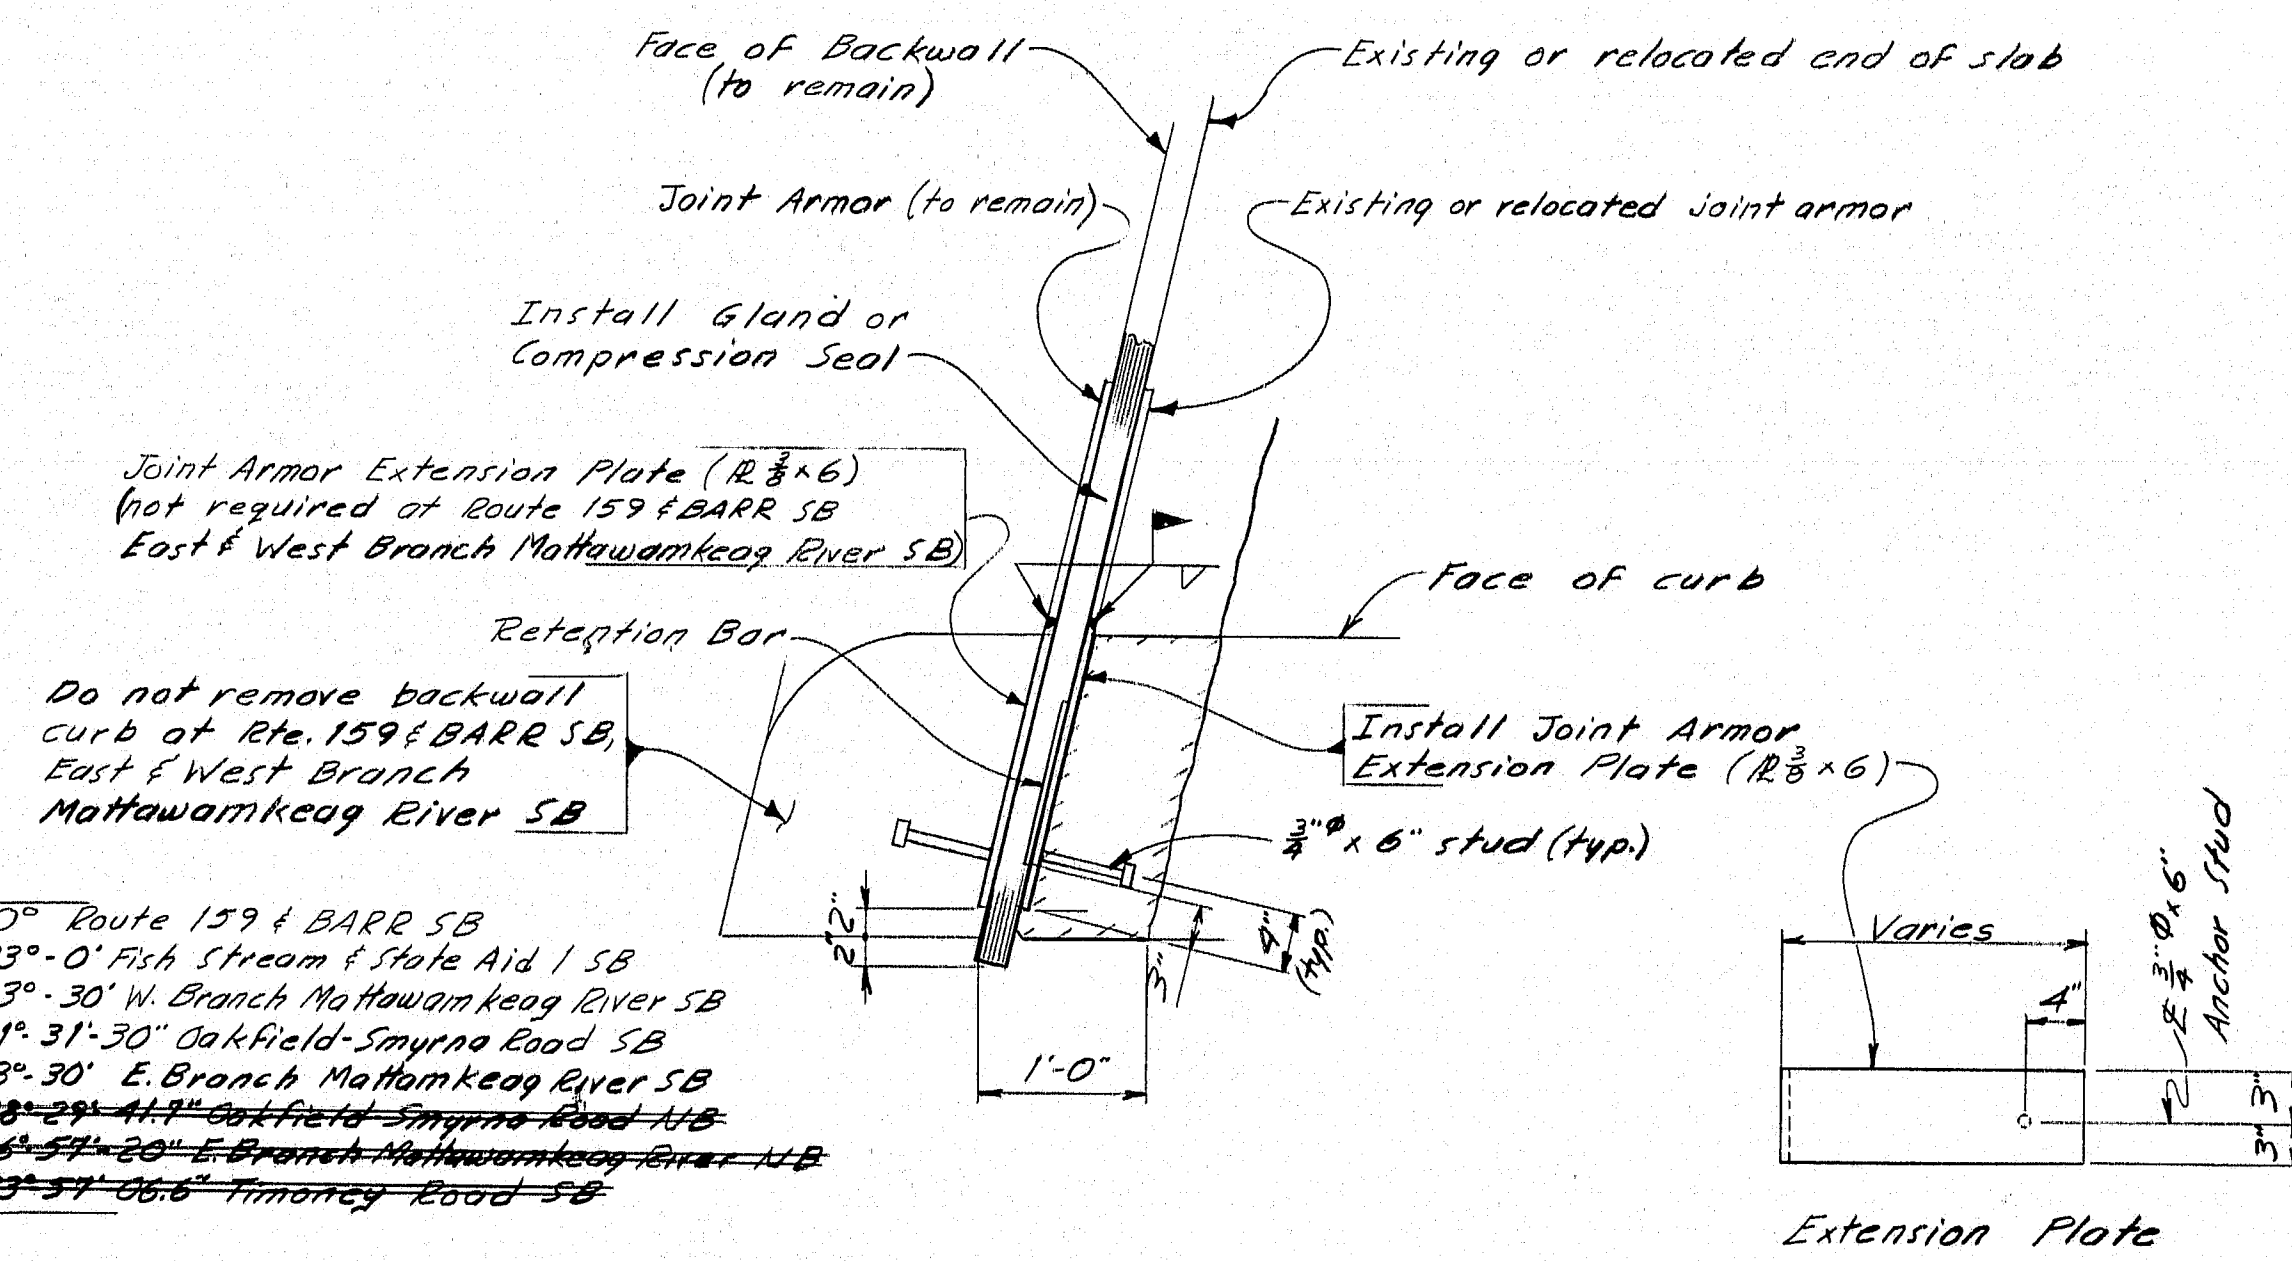 Face of Backwall
(to remain)
Existing or relocated end of slab
Joint Armor (to remain)
Existing or relocated joint armor
Install Gland or
Compression Seal
Joint Armor Extension Plate (PL 3/8 x 6)
(not required at Route 159 & BARR SB
East & West Branch Mattawamkeag River SB)
Face of curb
Retention Bar
Do not remove backwall
curb at Rte. 159 & BARR SB,
East & West Branch
Mattawamkeag River SB
Install Joint Armor
Extension Plate (PL 3/8 x 6)
3/4"ø x 6" stud (typ.)
0° Route 159 & BARR SB
3°-0' Fish Stream & State Aid 1 SB
3°-30' W. Branch Mattawamkeag River SB
1°-31'-30" Oakfield-Smyrna Road SB
3°-30' E. Branch Mattamkeag River SB
8°-29'-41.7" Oakfield Smyrna Road NB
6°-57'-20" E. Branch Mattawamkeag River NB
3°-57' 06.6" Timoney Road SB
2"
2"
3"
(typ.)
1'-0"
Varies
4"
℄ 3/4" ø x 6"
Anchor Stud
3"
3"
Extension Plate